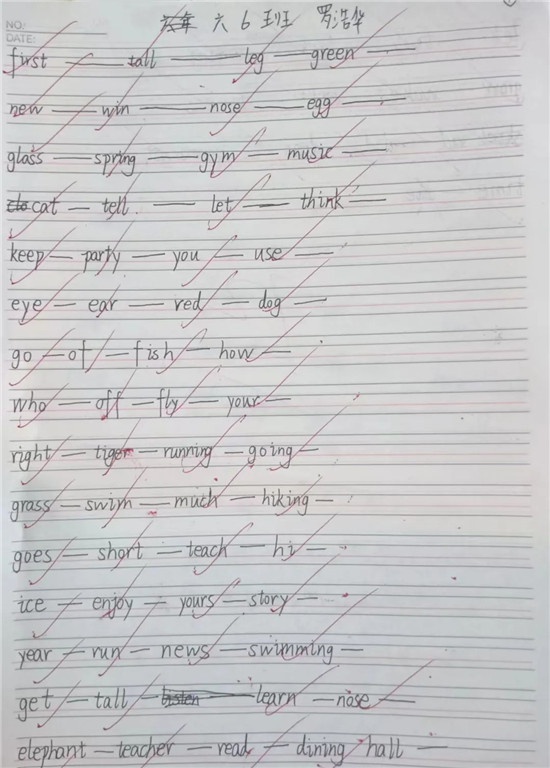 NO:
DATE:
六 6 班 罗浩华
first — tall — leg — green —
new — win — nose — egg —
glass — spring — gym — music —
cat — tell — let — think —
keep — party — you — use —
eye — ear — red — dog —
go — of — fish — how —
who — off — fly — your —
right — tiger — running — going —
grass — swim — much — hiking —
goes — short — teach — hi —
ice — enjoy — yours — story —
year — run — news — swimming —
get — tall — learn — nose —
elephant — teacher — read — dining hall —